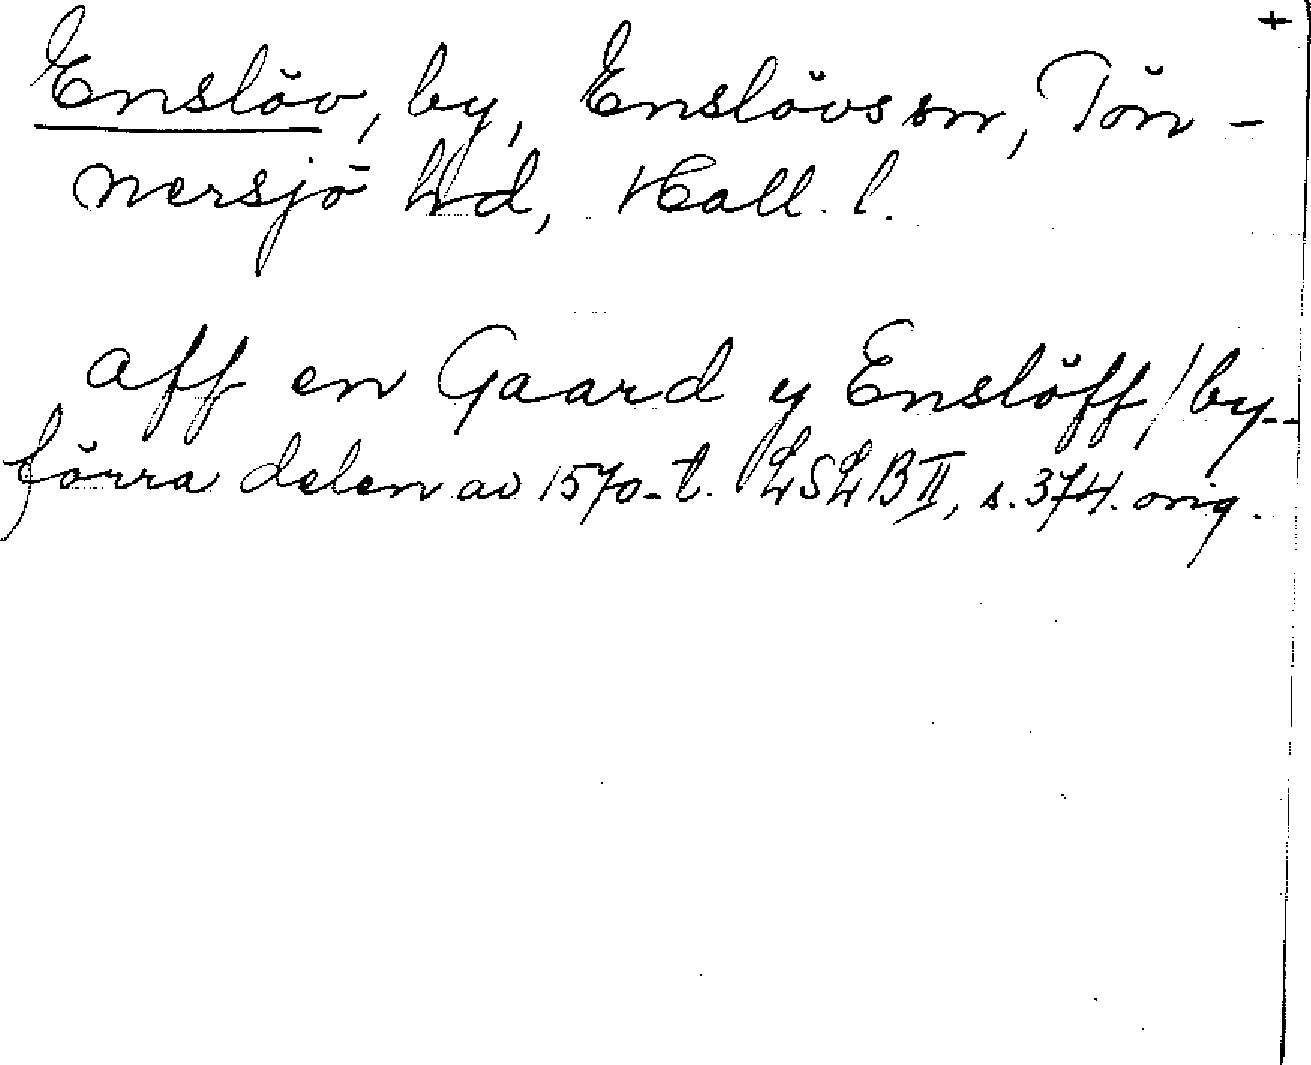 +
Enslöv, by, Enslövs sn, Tön-
nersjö hd, Hall. l.
aff en Gaard y Enslöff / by -
förra delen av 1570-t. LSLB II, s. 374. orig.